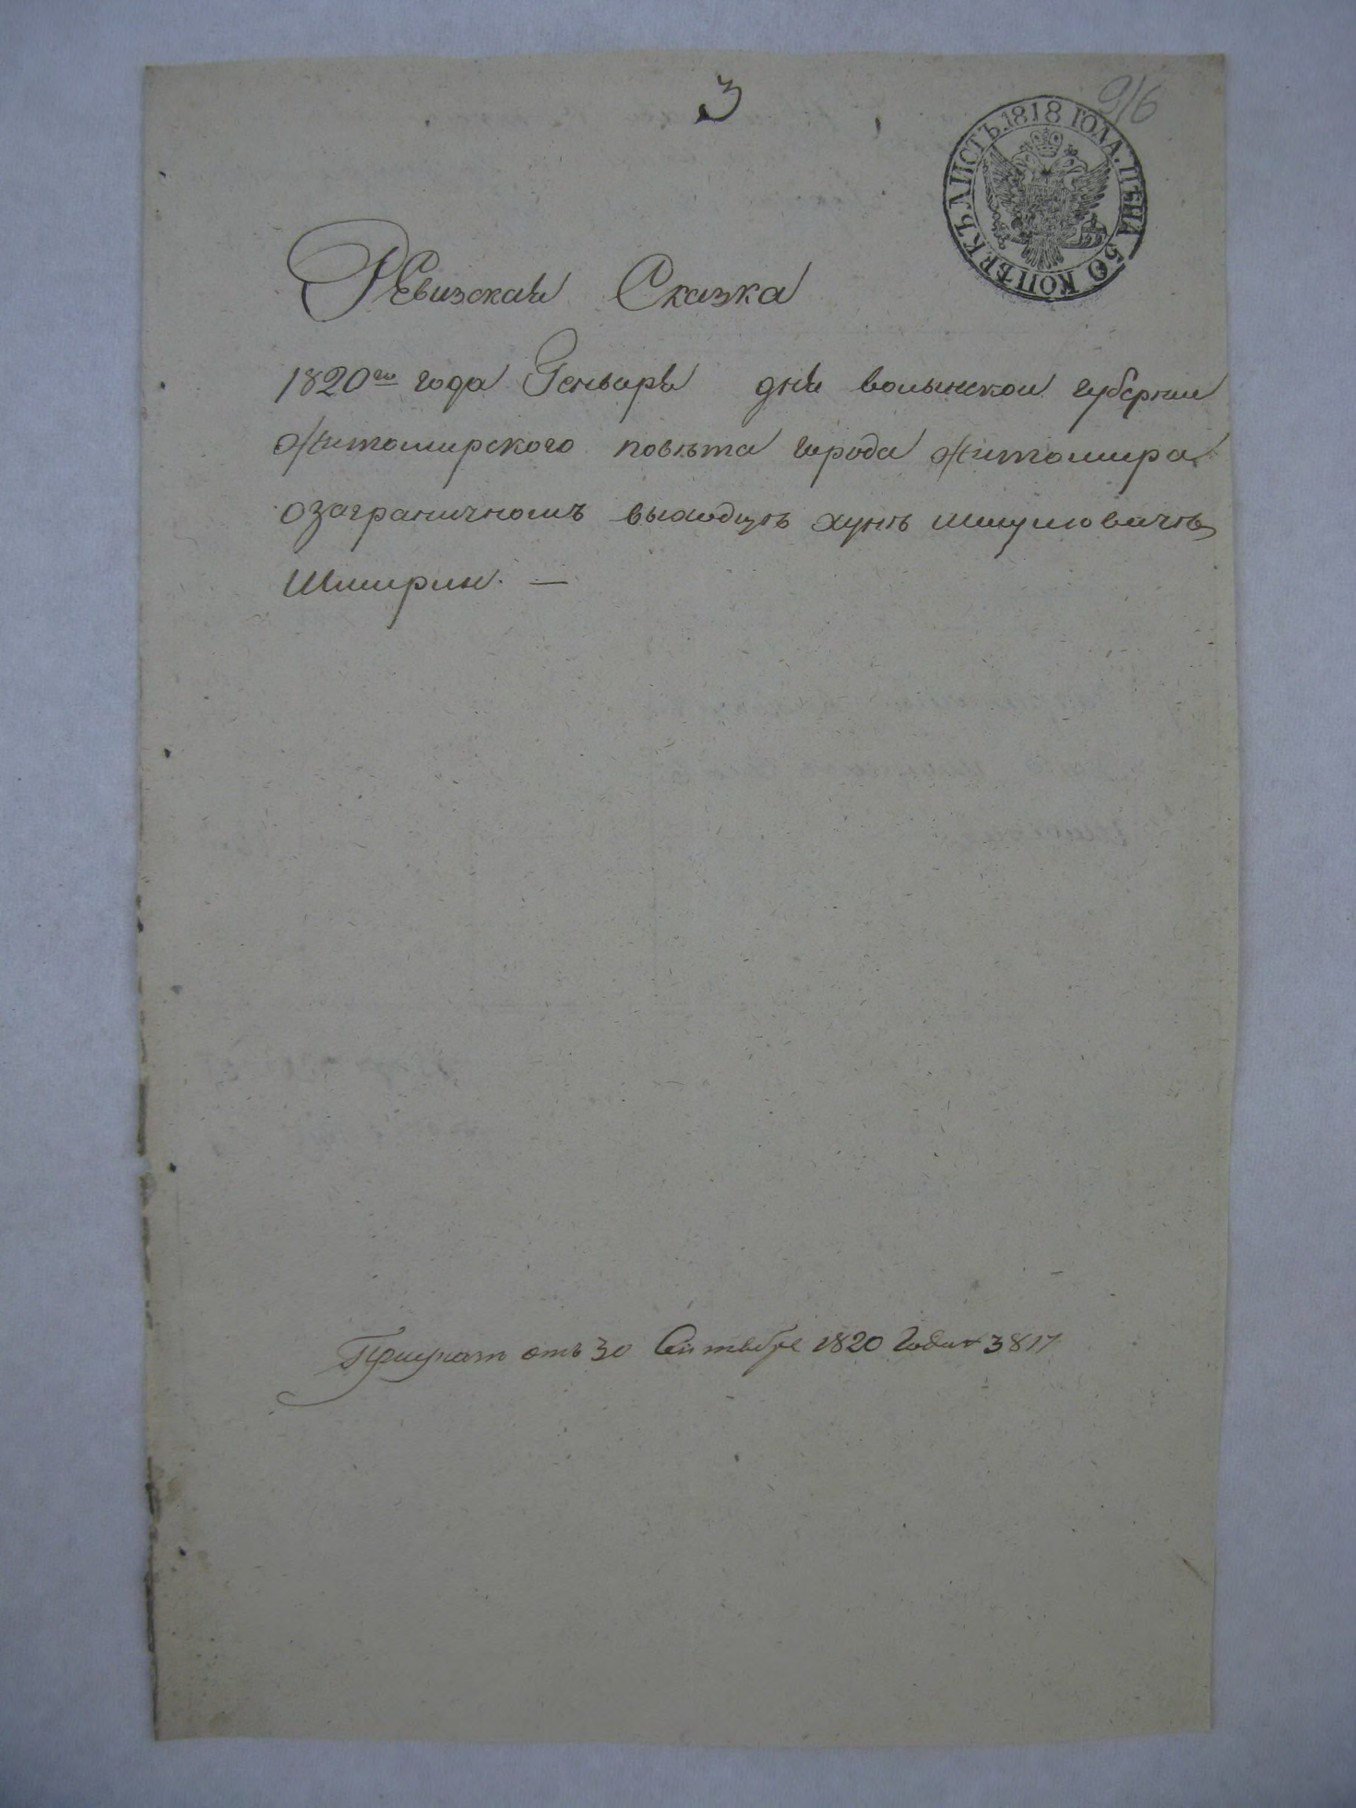 3
916
ЛИСТЪ. 1818 ГОДА. ЦѢНА 50 КОПѢЕКЪ
Ревизская Сказка
1820го года Генваря дня волынской губернии
Житомирского повѣта города Житомира
озаграничномъ выходцѣ хунѣ шмулювичѣ
Шмирин. —
от 30 Сентября 1820 Года 3817